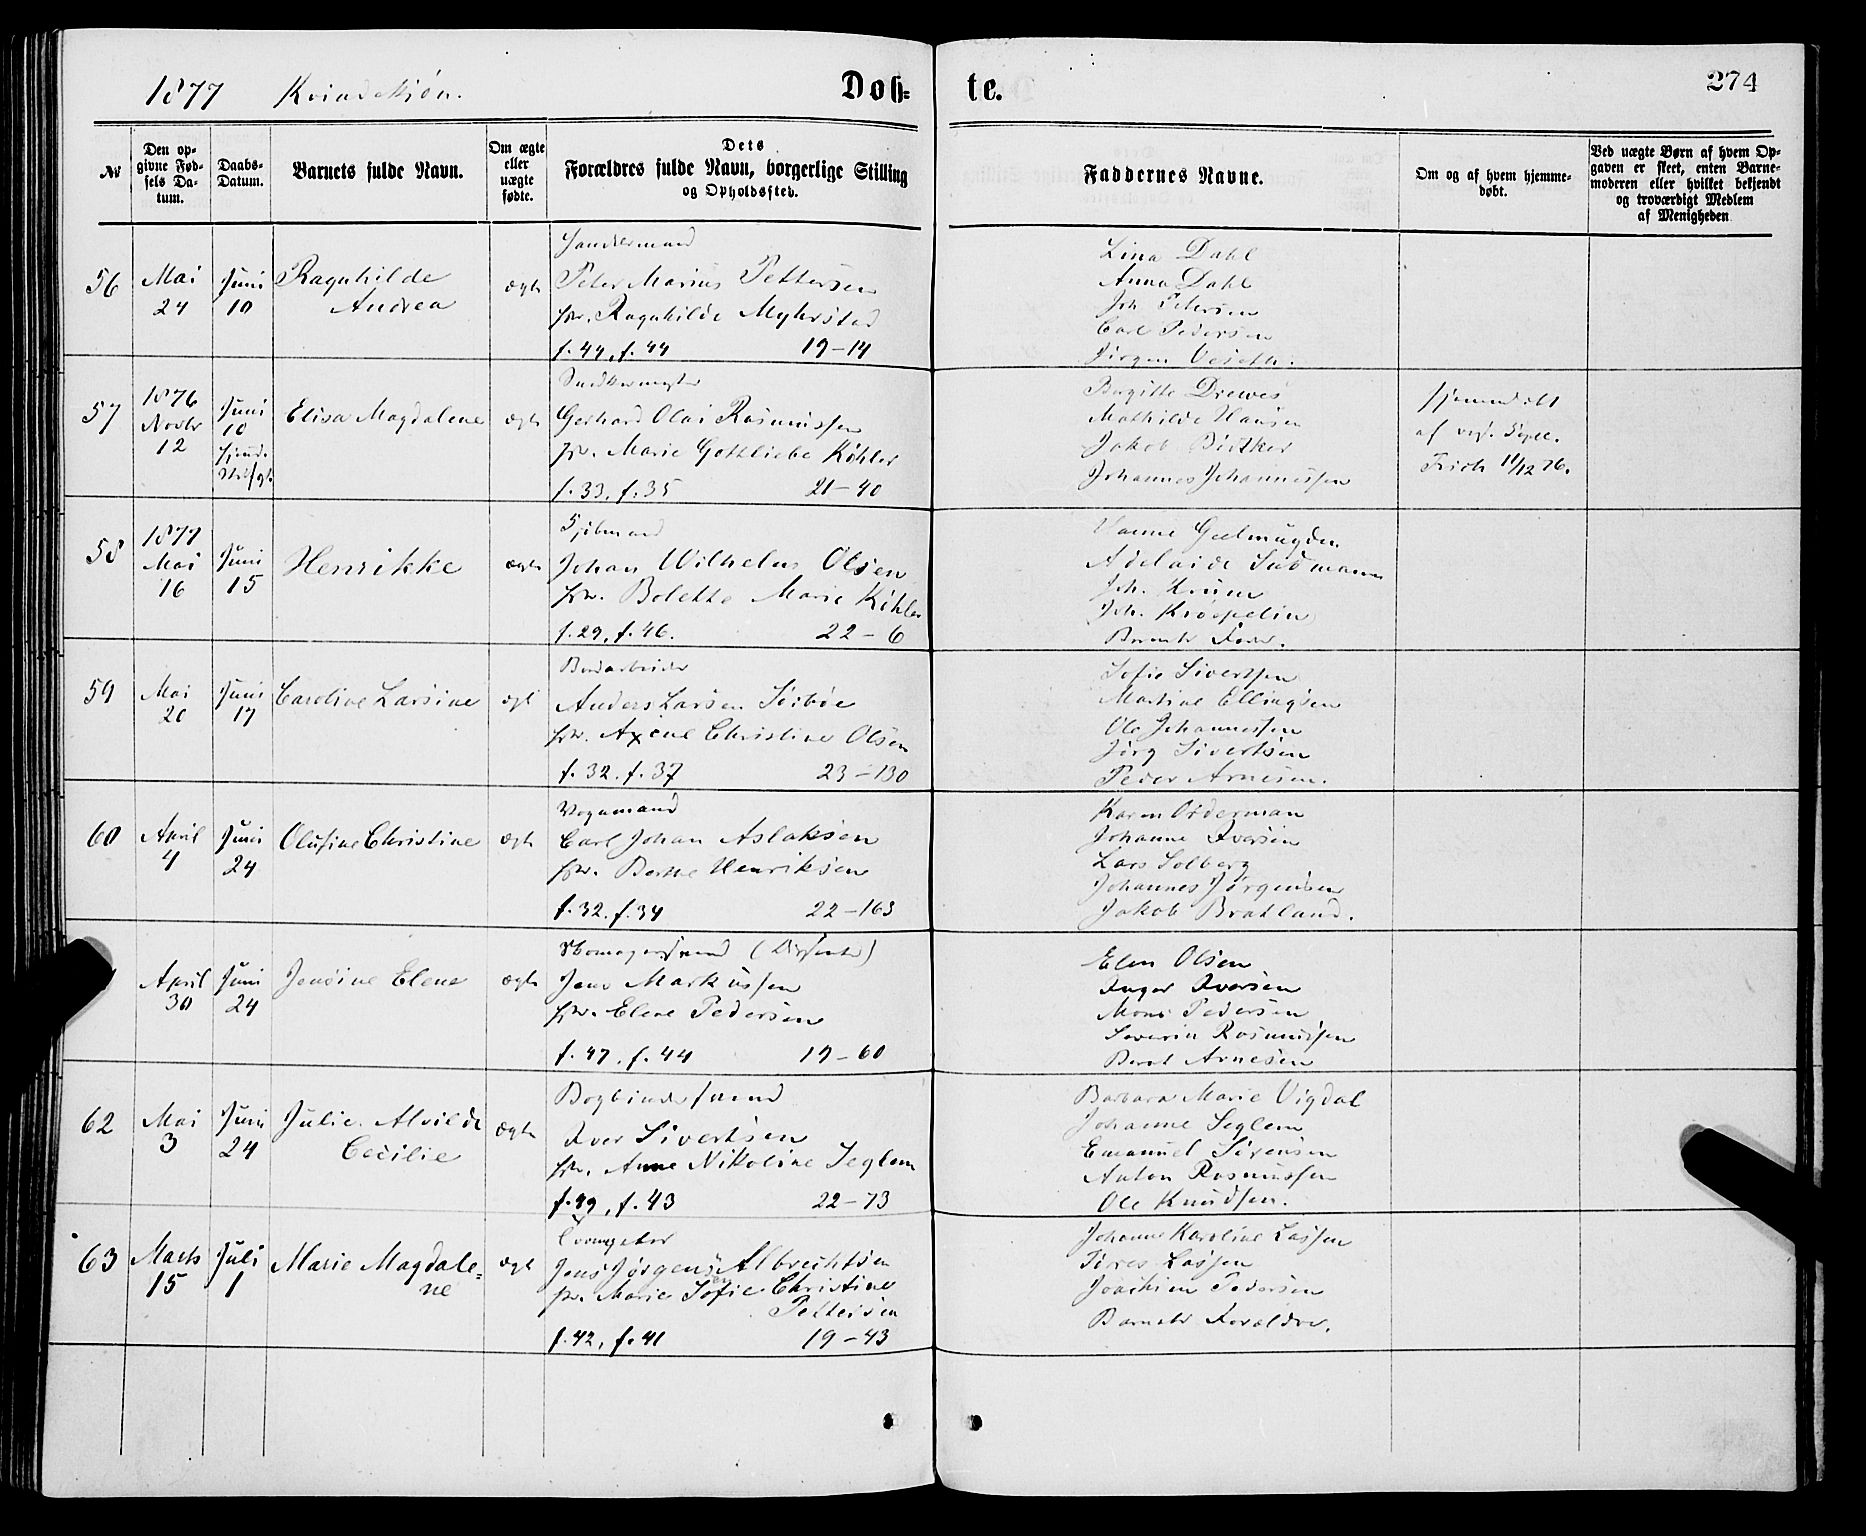 1877 Kvindekjøn.
Døb-
te.
274
No
Den op-
givne Fød-
sels Da-
tum.
Daabs-
Datum.
Barnets fulde Navn.
Om ægte
eller
uægte
fødte.
Dets
Forældres fulde Navn, borgerlige Stilling
og Opholdssted.
Faddernes Navne.
Om og af hvem hjemme-
døbt.
Ved uægte Børn af hvem Op-
gaven er skeet, enten Barne-
moderen eller hvilket bekjendt
og troværdigt Medlem
af Menigheden
56
Mai
24
Juni
10
Ragnhilde
Andrea
ægte
Handlermand
Peter Marius Pettersen
hu. Ragnhilde Myhrstad
f. 44, f. 44 19-14
Lina Dahl
Anna Dahl
Joh Petersen
Carl Pedersen
Jørgen
57
1876
Novbr
12
Juni
10
Elisa Magdalene
ægte
Snedkermester
Gerhard Olai Rasmussen
hu. Marie Gottliebe Köhler
f. 33, f. 35 21-40
Birgitte Drewes
Mathilde Hansen
Jakob
Johannes Johannessen
hjemmedøbt
af
11/12 76.
58
1877
Mai
16
Juni
15
Henrikke
ægte
Sjømand
Johan Wilhelm Olsen
hu. Bolette Marie Köhler
f. 29, f. 46. 22-6
Hanne Geelmuyden
Adelaide
Joh.
Joh. Krøepelin
Barnets Fader.
59
Mai
20
Juni
17
Caroline Larsine
ægt
Bordarbeider
Anders Larsen Sørbøe
hu. Axene Christine Olsen
f. 32. f. 37 23-130
Sofie Sivertsen
Martine Ellingsen
Ole Johannessen
Jørg Sivertsen
Peder Arnesen.
60
April
4
Juni
24
Olufine Christine
ægte
Vognmand
Carl Johan Aslaksen
hu. Berthe Henriksen
f. 32. f. 34 22-163
Karen Orderman
Johanne Iversen
Lars Solberg
Johannes Jørgensen
Jakob Bratland.
April
30
Juni
24
Jensine Elene
ægte
Skomagersvend (Dissenter)
Jens Markussen
hu. Elene Pedersen
f. 47. f. 44 19-60
Elen Olsen
Inger Iversen
Mons Pedersen
Severin Rasmussen
Bernt Arnesen
62
Mai
3
Juni
24
Julie Alvilde
Cecilie
ægte
Bogbindersvend
Iver Sivertsen
hu. Anne Nikoline Seglem
f. 49, f. 43 22-73
Barbara Marie Vigdal
Johanne Seglem
Emanuel Sørensen
Anton Rasmussen
Ole Knudsen.
63
Marts
15
Juli
1
Marie Magdale-
ne
ægt
Jens Jørgensen Albrechtsen
hu. Marie Sofie Christine
Pettersen
f. 42, f. 41 19-43
Johanne Karoline Lassen
Lassen
Joachim Pedersen
Barnets Forældre.